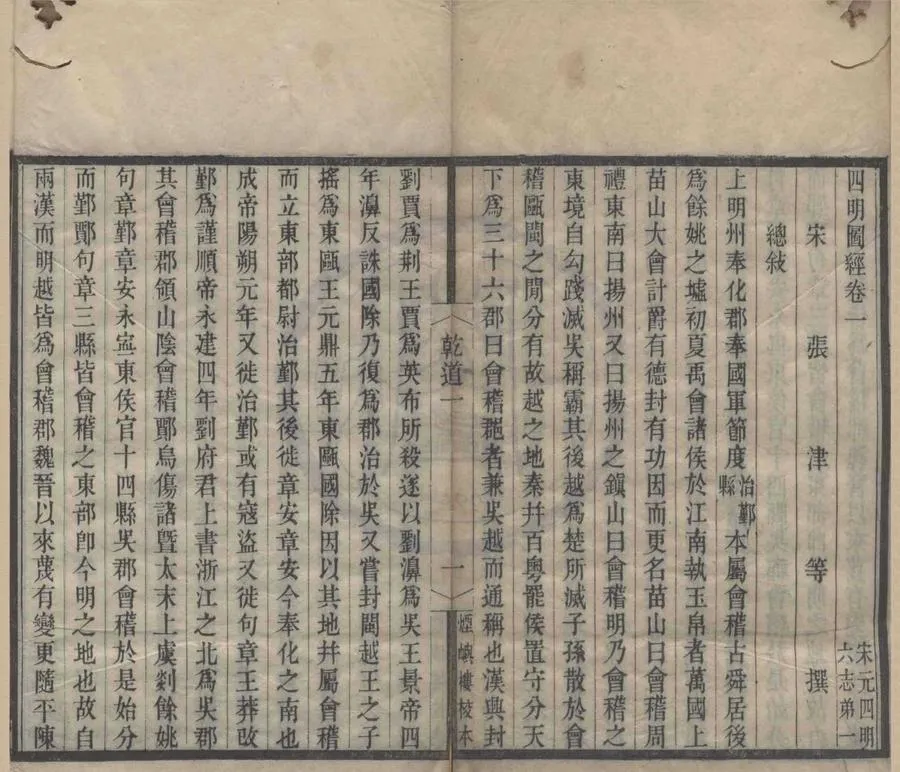 四明圖經卷一
宋元四明
六志弟一
宋張津等撰
總敍
上明州奉化郡奉國軍節度治鄞縣本屬會稽古舜居後
爲餘姚之墟初夏禹會諸侯於江南執玉帛者萬國上
苗山大會計爵有德封有功因而更名苗山曰會稽周
禮東南曰揚州又曰揚州之鎭山曰會稽明乃會稽之
東境自勾踐滅吳稱霸其後越爲楚所滅子孫散於會
稽甌閩之閒分有故越之地秦幷百粵罷侯置守分天
下爲三十六郡曰會稽郡者兼吳越而通稱也漢興封
乾道一
一
煙嶼樓校本
劉賈爲荆王賈爲英布所殺遂以劉濞爲吳王景帝四
年濞反誅國除乃復爲郡治於吳又嘗封閩越王之子
搖爲東甌王元鼎五年東甌國除因以其地幷屬會稽
而立東部都尉治鄞其後徙章安章安今奉化之南也
成帝陽朔元年又徙治鄞或有寇盜又徙句章王莽改
鄞爲謹順帝永建四年劉府君上書浙江之北爲吳郡
其會稽郡領山陰會稽鄮烏傷諸暨太末上虞剡餘姚
句章鄞章安永寍東侯官十四縣吳郡會稽於是始分
而鄞鄮句章三縣皆會稽之東部卽今明之地也故自
兩漢而明越皆爲會稽郡魏晉以來蔑有變更隨平陳